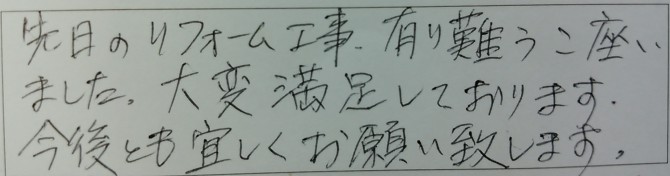 先日のリフォーム工事、有り難うご座い
ました。大変満足しております。
今後とも宜しくお願い致します。